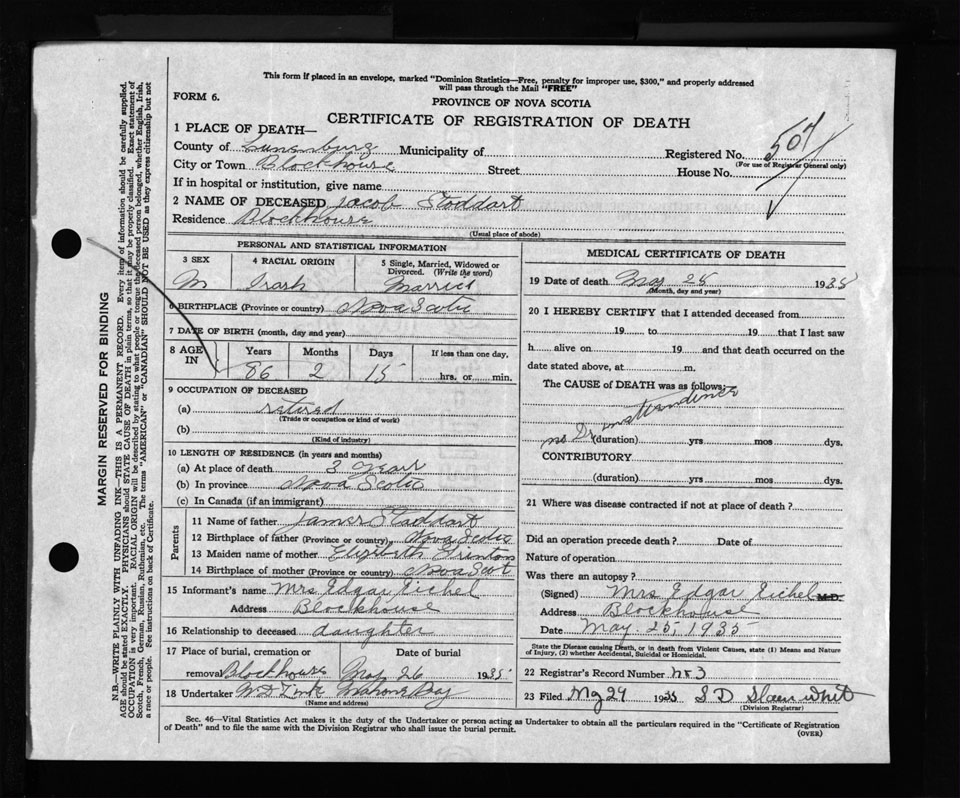 This form if placed in an envelope, marked "Dominion Statistics—Free, penalty for improper use, $300," and properly addressed
will pass through the Mail "FREE"
FORM 6.
PROVINCE OF NOVA SCOTIA
CERTIFICATE OF REGISTRATION OF DEATH
1 PLACE OF DEATH—
County of Lunenburg Municipality of Registered No. 507
(For use of Registrar General only)
City or Town Blockhouse Street House No.
If in hospital or institution, give name
2 NAME OF DECEASED Jacob Stoddart
Residence Blockhouse
(Usual place of abode)
PERSONAL AND STATISTICAL INFORMATION
3 SEX 4 RACIAL ORIGIN 5 Single, Married, Widowed or
Divorced. (Write the word)
M Irash Married
6 BIRTHPLACE (Province or country) Nova Scotia
7 DATE OF BIRTH (month, day and year)
8 AGE IN Years Months Days If less than one day,
86 2 15 hrs. or min.
9 OCCUPATION OF DECEASED
(a) retired
(Trade or occupation or kind of work)
(b)
(Kind of industry)
10 LENGTH OF RESIDENCE (in years and months)
(a) At place of death 3 year
(b) In province Nova Scotia
(c) In Canada (if an immigrant)
Parents
11 Name of father James Stoddart
12 Birthplace of father (Province or country) Nova Scotia
13 Maiden name of mother Elizibeth
14 Birthplace of mother (Province or country) Nova Scot
15 Informant's name Mrs Edgar Eichel
Address Blockhouse
16 Relationship to deceased daughter
17 Place of burial, cremation or removal Date of burial
Blockhouse May 26 1935
18 Undertaker Mahone Bay
(Name and address)
MEDICAL CERTIFICATE OF DEATH
19 Date of death May 25 1935
(Month, day and year)
20 I HEREBY CERTIFY that I attended deceased from
19 to 19 that I last saw
h alive on 19 and that death occurred on the
date stated above, at m.
The CAUSE of DEATH was as follows:
no Dr in
(duration) yrs mos dys.
CONTRIBUTORY
(duration) yrs mos dys.
21 Where was disease contracted if not at place of death?
Did an operation precede death? Date of
Nature of operation
Was there an autopsy?
(Signed) Mrs Edgar Eichel M.D.
Address Blockhouse
Date May 25, 1935
State the Disease causing Death, or in death from Violent Causes, state (1) Means and Nature
of Injury, (2) whether Accidental, Suicidal or Homicidal.
22 Registrar's Record Number
23 Filed 1935 S D
(Division Registrar)
Sec. 46—Vital Statistics Act makes it the duty of the Undertaker or person acting as Undertaker to obtain all the particulars required in the "Certificate of Registration
of Death" and to file the same with the Division Registrar who shall issue the burial permit.
(OVER)
MARGIN RESERVED FOR BINDING
N.B.—WRITE PLAINLY WITH UNFADING INK—THIS IS A PERMANENT RECORD. Every item of information should be carefully supplied.
AGE should be stated EXACTLY. PHYSICIANS should STATE CAUSE OF DEATH in plain terms, so that it may be properly classified. Exact statement of
OCCUPATION is very important. RACIAL ORIGIN will be described by stating to what people or tongue the deceased person belonged, whether English, Irish,
Scotch, French, German, Russian, Ruthenian, etc. The terms "AMERICAN" or "CANADIAN" SHOULD NOT BE USED as they express citizenship but not
a race or people. See instructions on back of Certificate.